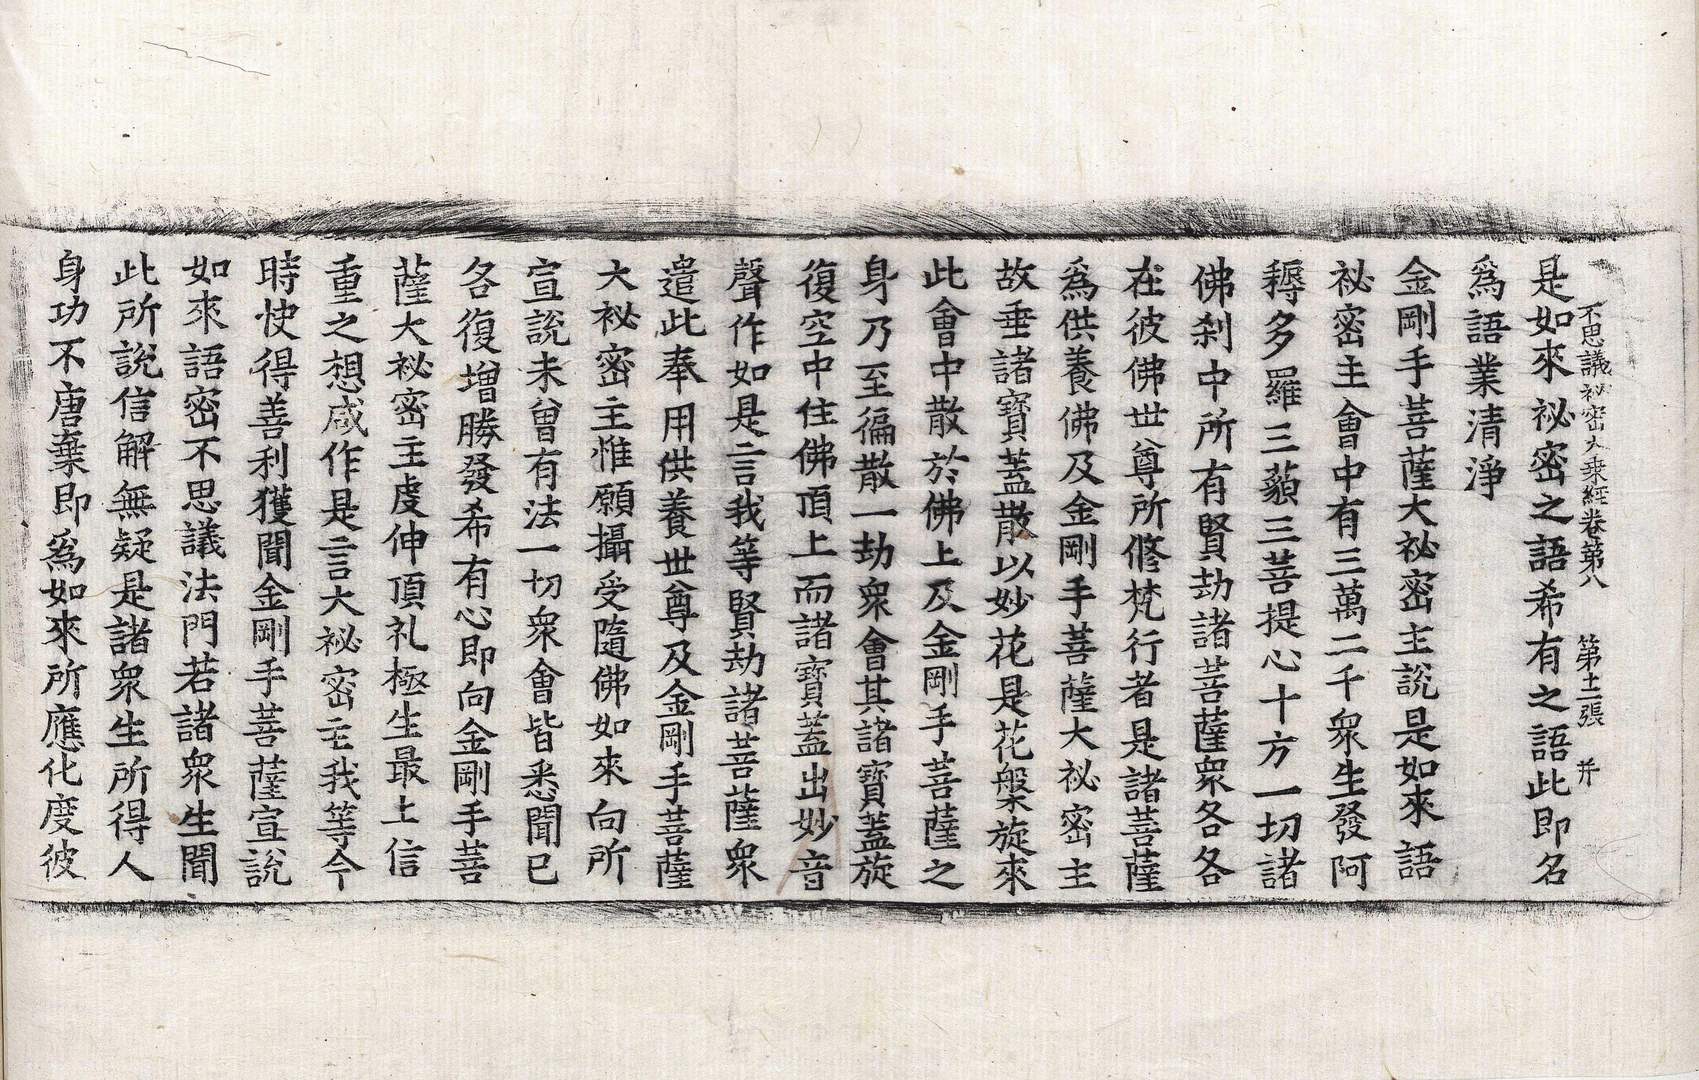 不思議祕密大乘經卷第八　第十二張　幷
是如來祕密之語希有之語此即名
爲語業清淨
金剛手菩薩大祕密主說是如來語
祕密主會中有三萬二千衆生發阿
耨多羅三藐三菩提心十方一切諸
佛刹中所有賢劫諸菩薩衆各各
在彼佛世尊所修梵行者是諸菩薩
爲供養佛及金剛手菩薩大祕密主
故垂諸寶蓋散以妙花是花槃旋來
此會中散於佛上及金剛手菩薩之
身乃至徧散一劫衆會其諸寶蓋旋
復空中住佛頂上而諸寶蓋出妙音
聲作如是言我等賢劫諸菩薩衆
遣此奉用供養世尊及金剛手菩薩
大祕密主惟願攝受隨佛如來向所
宣說未曾有法一切衆會皆悉聞已
各復增勝發希有心即向金剛手菩
薩大祕密主虔伸頂礼極生最上信
重之想咸作是言大祕密主我等今
時快得善利獲聞金剛手菩薩宣說
如來語密不思議法門若諸衆生聞
此所說信解無疑是諸衆生所得人
身功不唐棄即爲如來所應化度彼